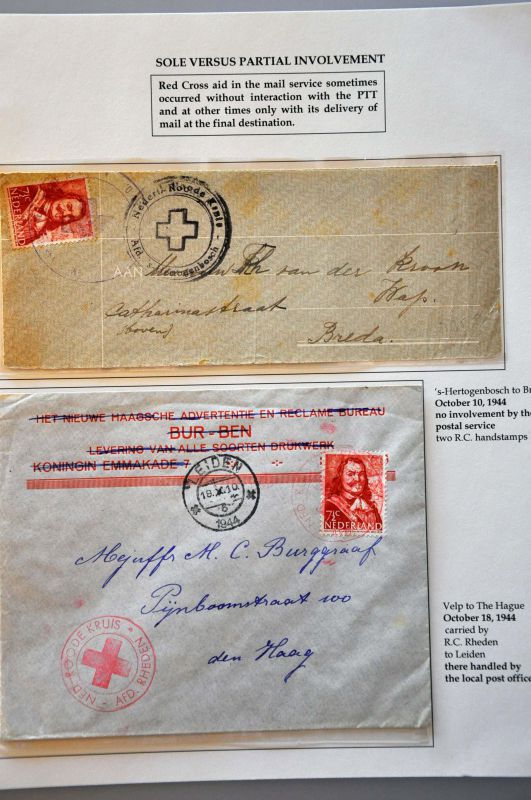 SOLE VERSUS PARTIAL INVOLVEMENT
Red Cross aid in the mail service sometimes
occurred without interaction with the PTT
and at other times only with its delivery of
mail at the final destination.
7½ C
NEDERLAND
Nederl. Roode Kruis
Afd. 's Hertogenbosch
AAN
van der Kroon
Catharinastraat
(boven)
Breda.
's-Hertogenbosch to Br
October 10, 1944
no involvement by the
postal service
two R.C. handstamps
HET NIEUWE HAAGSCHE ADVERTENTIE EN RECLAME BUREAU
BUR - BEN
LEVERING VAN ALLE SOORTEN DRUKWERK
KONINGIN EMMAKADE 7
LEIDEN
18.X.10
1944
7½ C
NEDERLAND
Mejuffr M. C. Burggraaf
Pijnboomstraat 100
den Haag
NED. ROODE KRUIS
AFD. RHEDEN
Velp to The Hague
October 18, 1944
carried by
R.C. Rheden
to Leiden
there handled by
the local post office